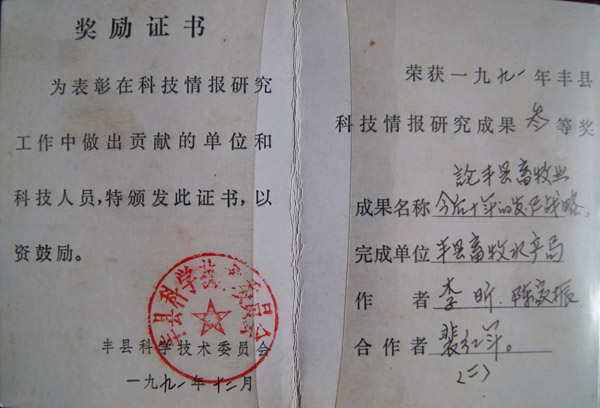 奖励证书
为表彰在科技情报研究
工作中做出贡献的单位和
科技人员,特颁发此证书,以
资鼓励。
丰县科学技术委员会
丰县科学技术委员会
一九九一年十二月
荣获一九九一年丰县
科技情报研究成果叁等奖
论丰县畜牧业
成果名称今后十年的发展战略
完成单位丰县畜牧水产局
作者李昕、陈家振
合作者裴红军。
(二)